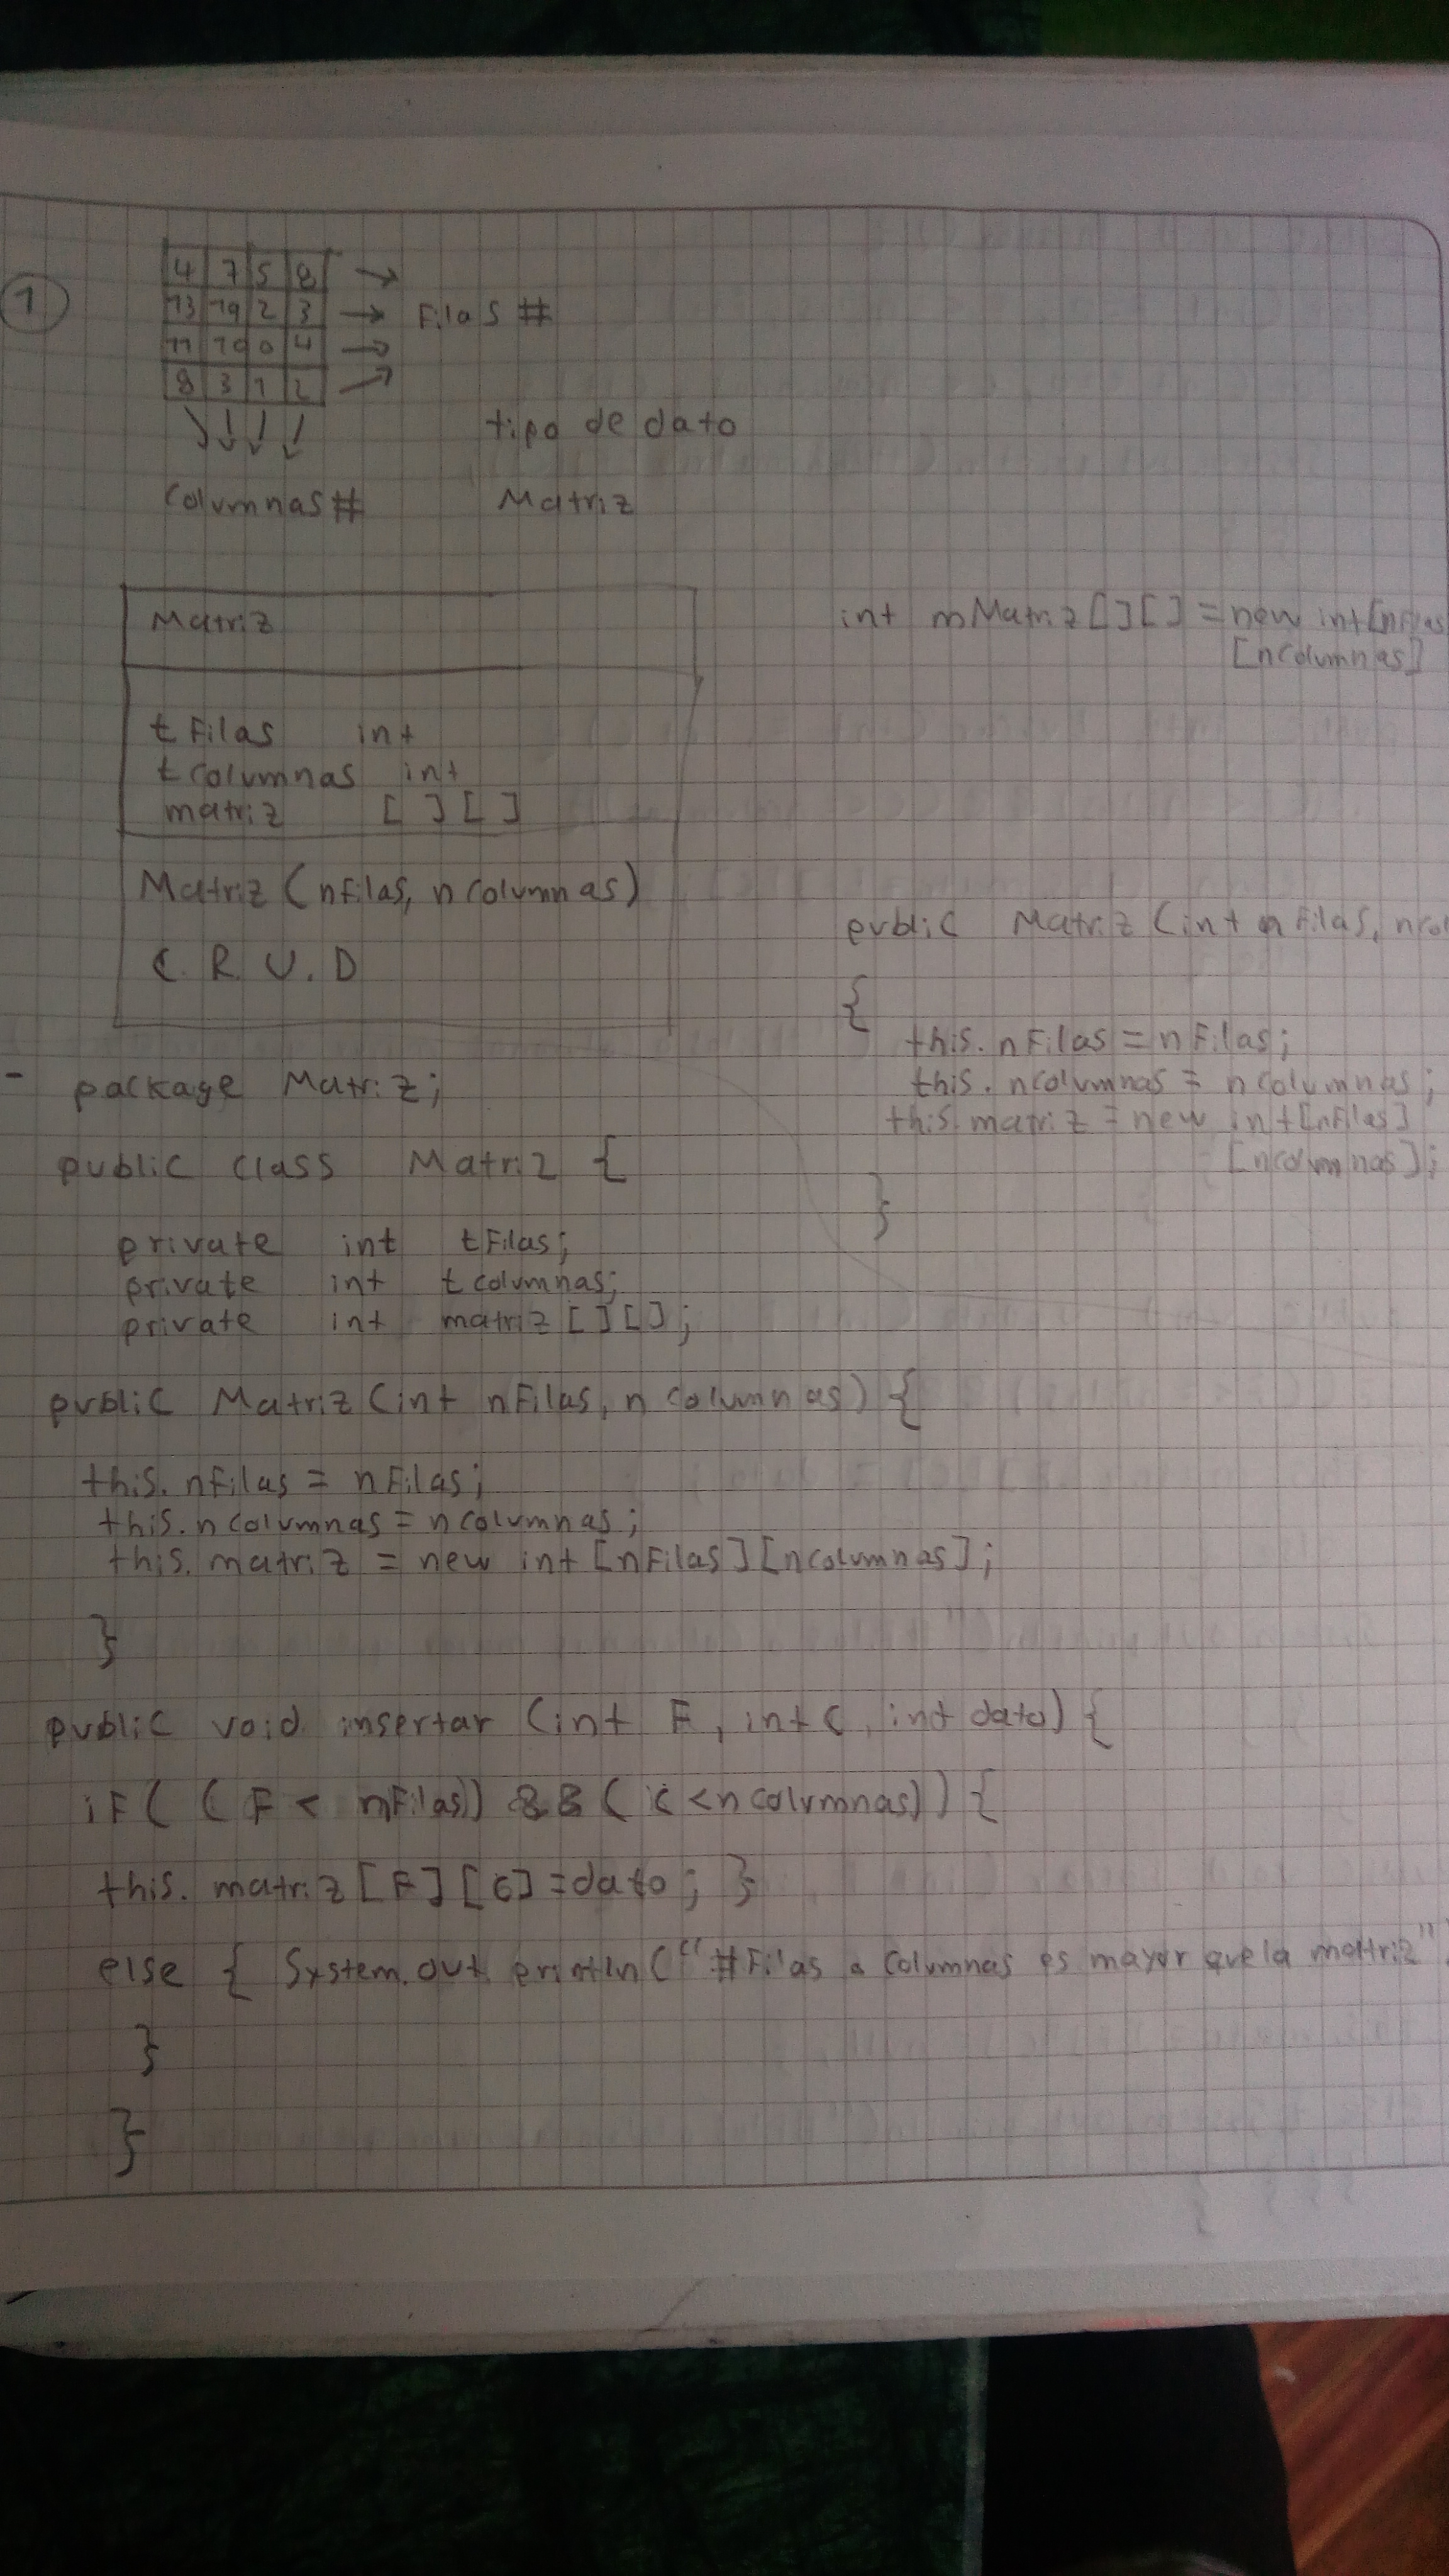 1
4 7 5 8
13 19 2 3
Filas #
11 10 0 4
8 3 1 2
tipo de dato
Columnas #
Matriz
Matriz
int mMatriz[][] = new int[nFilas
[nColumnas]
tFilas int
tColumnas int
matriz [ ] [ ]
Matriz (nFilas, nColumnas)
C. R. U. D
public Matriz (int nFilas, ncol
{
this.nFilas = nFilas;
this.nColumnas = nColumnas;
this.matriz = new int[nFilas]
[nColumnas];
}
- package Matriz;
public class Matriz {
private int tFilas;
private int tcolumnas;
private int matriz [ ] [ ];
public Matriz (int nFilas, nColumnas) {
this.nFilas = nFilas;
this.nColumnas = nColumnas;
this.matriz = new int [nFilas][nColumnas];
}
public void insertar (int F, int C, int dato) {
if ( ( F < nFilas)) && ( C < nColumnas)) {
this.matriz [F] [C] = dato; }
else { System.out.println (" #Filas o Columnas es mayor que la matriz"
}
}